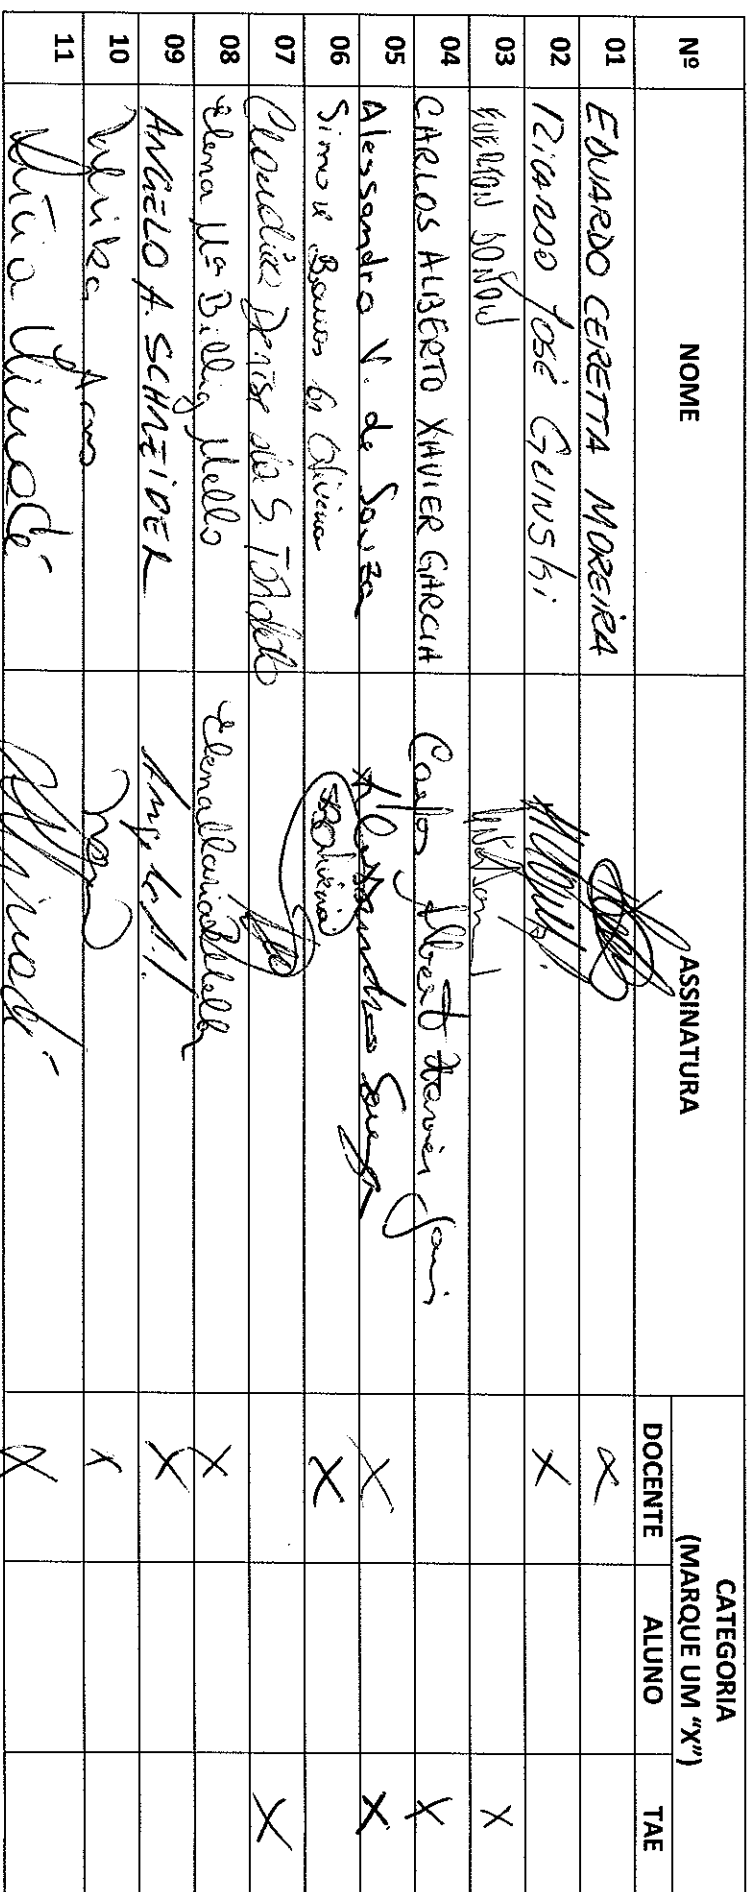 Nº NOME ASSINATURA CATEGORIA (MARQUE UM “X”)
DOCENTE ALUNO TAE
01 EDUARDO CERETTA MOREIRA X
02 RICARDO JOSÉ GUNSKI X
03 X
04 CARLOS ALBERTO XAVIER GARCIA Carlos Alberto Xavier X
05 Alessandro V. de Souza Alessandro Souza X X
06 Simone Barros de Oliveira SOliveira X
07 Claudia Denise da S. X
08 Elena Mª Billig Mello Elena Maria BMello X
09 ANGELO A. SCHNEIDER Angelo A. X
10 X
11 X